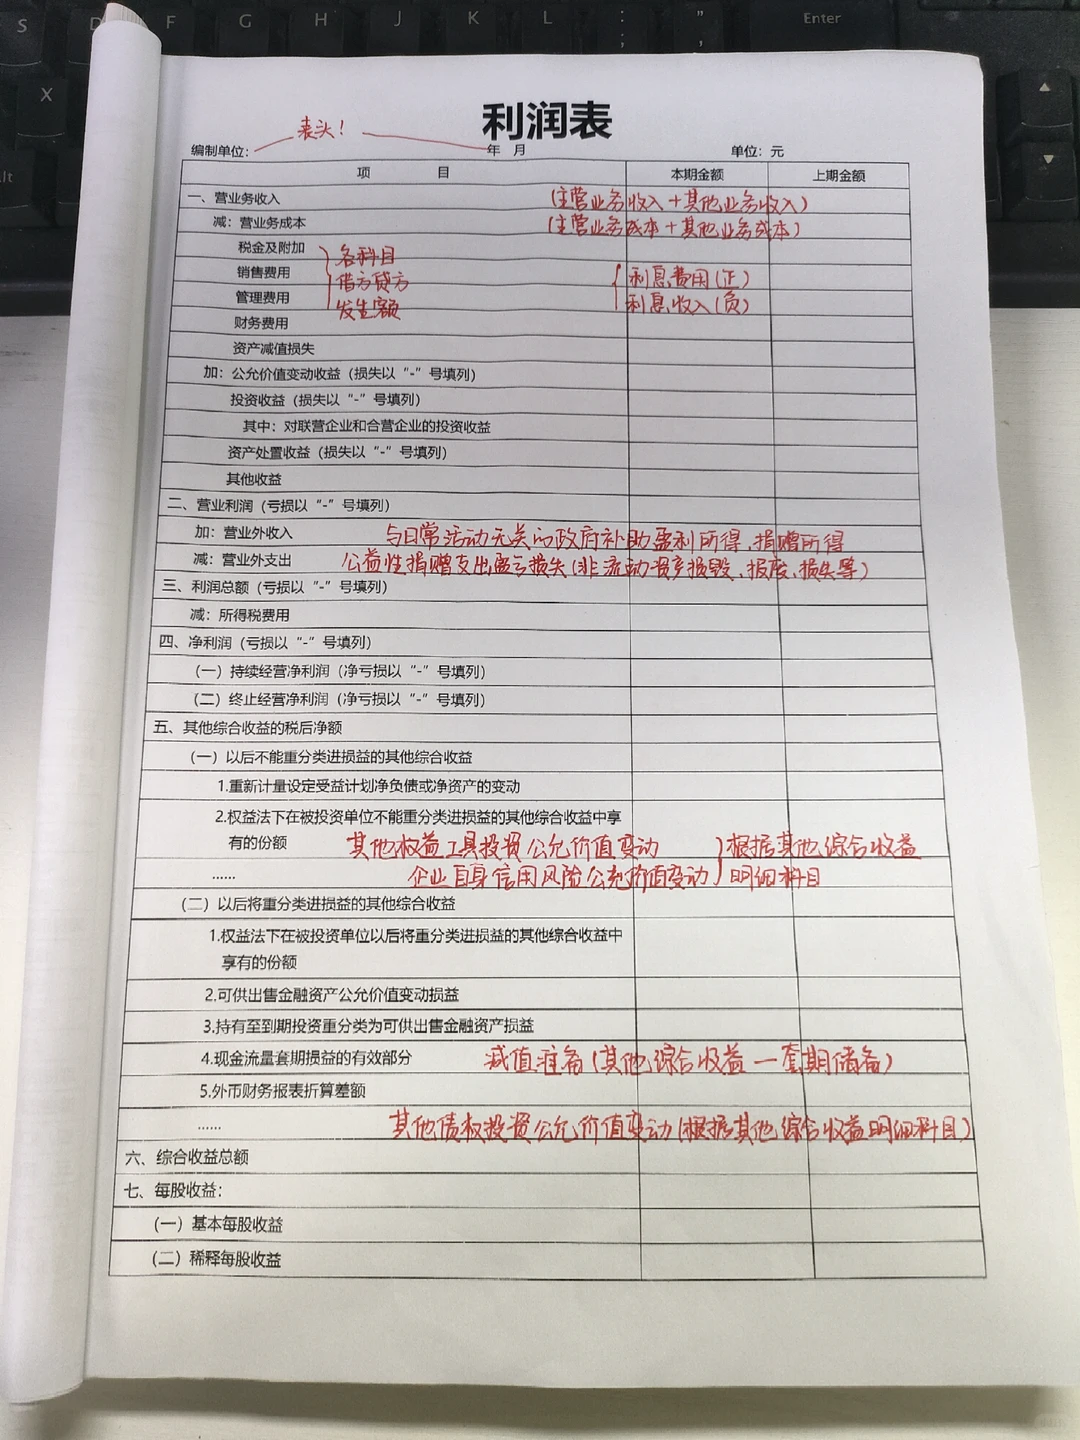 S D F G H J K L : ; " , Enter
X
lt
利润表
表头！
编制单位： 年 月 单位：元
项 目 本期金额 上期金额
一、营业收入 (主营业务收入+其他业务收入)
减：营业成本 (主营业务成本+其他业务成本)
税金及附加 各科目
销售费用 借方贷方 利息费用(正)
管理费用 发生额 利息收入(负)
财务费用
资产减值损失
加：公允价值变动收益（损失以“-”号填列）
投资收益（损失以“-”号填列）
其中：对联营企业和合营企业的投资收益
资产处置收益（损失以“-”号填列）
其他收益
二、营业利润（亏损以“-”号填列）
加：营业外收入 与日常活动无关的政府补助盈利所得、捐赠所得
减：营业外支出 公益性捐赠支出盈亏损失(非流动资产损毁、报废、损失等)
三、利润总额（亏损以“-”号填列）
减：所得税费用
四、净利润（亏损以“-”号填列）
（一）持续经营净利润（净亏损以“-”号填列）
（二）终止经营净利润（净亏损以“-”号填列）
五、其他综合收益的税后净额
（一）以后不能重分类进损益的其他综合收益
1.重新计量设定受益计划净负债或净资产的变动
2.权益法下在被投资单位不能重分类进损益的其他综合收益中享
有的份额 其他权益工具投资公允价值变动 根据其他综合收益
…… 企业自身信用风险公允价值变动 明细科目
（二）以后将重分类进损益的其他综合收益
1.权益法下在被投资单位以后将重分类进损益的其他综合收益中
享有的份额
2.可供出售金融资产公允价值变动损益
3.持有至到期投资重分类为可供出售金融资产损益
4.现金流量套期损益的有效部分 减值准备(其他综合收益一套期储备)
5.外币财务报表折算差额
…… 其他债权投资公允价值变动(根据其他综合收益明细科目)
六、综合收益总额
七、每股收益：
（一）基本每股收益
（二）稀释每股收益